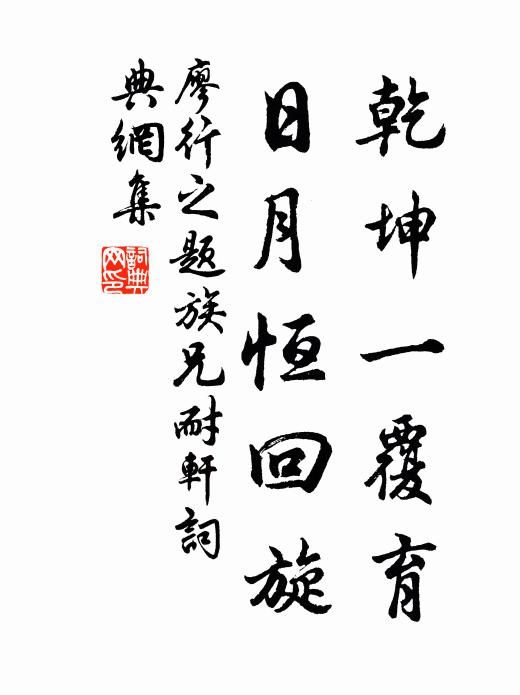 乾坤一覆育
日月恒回旋
廖行之題族兄耐軒詞
典網集
詞典
网印